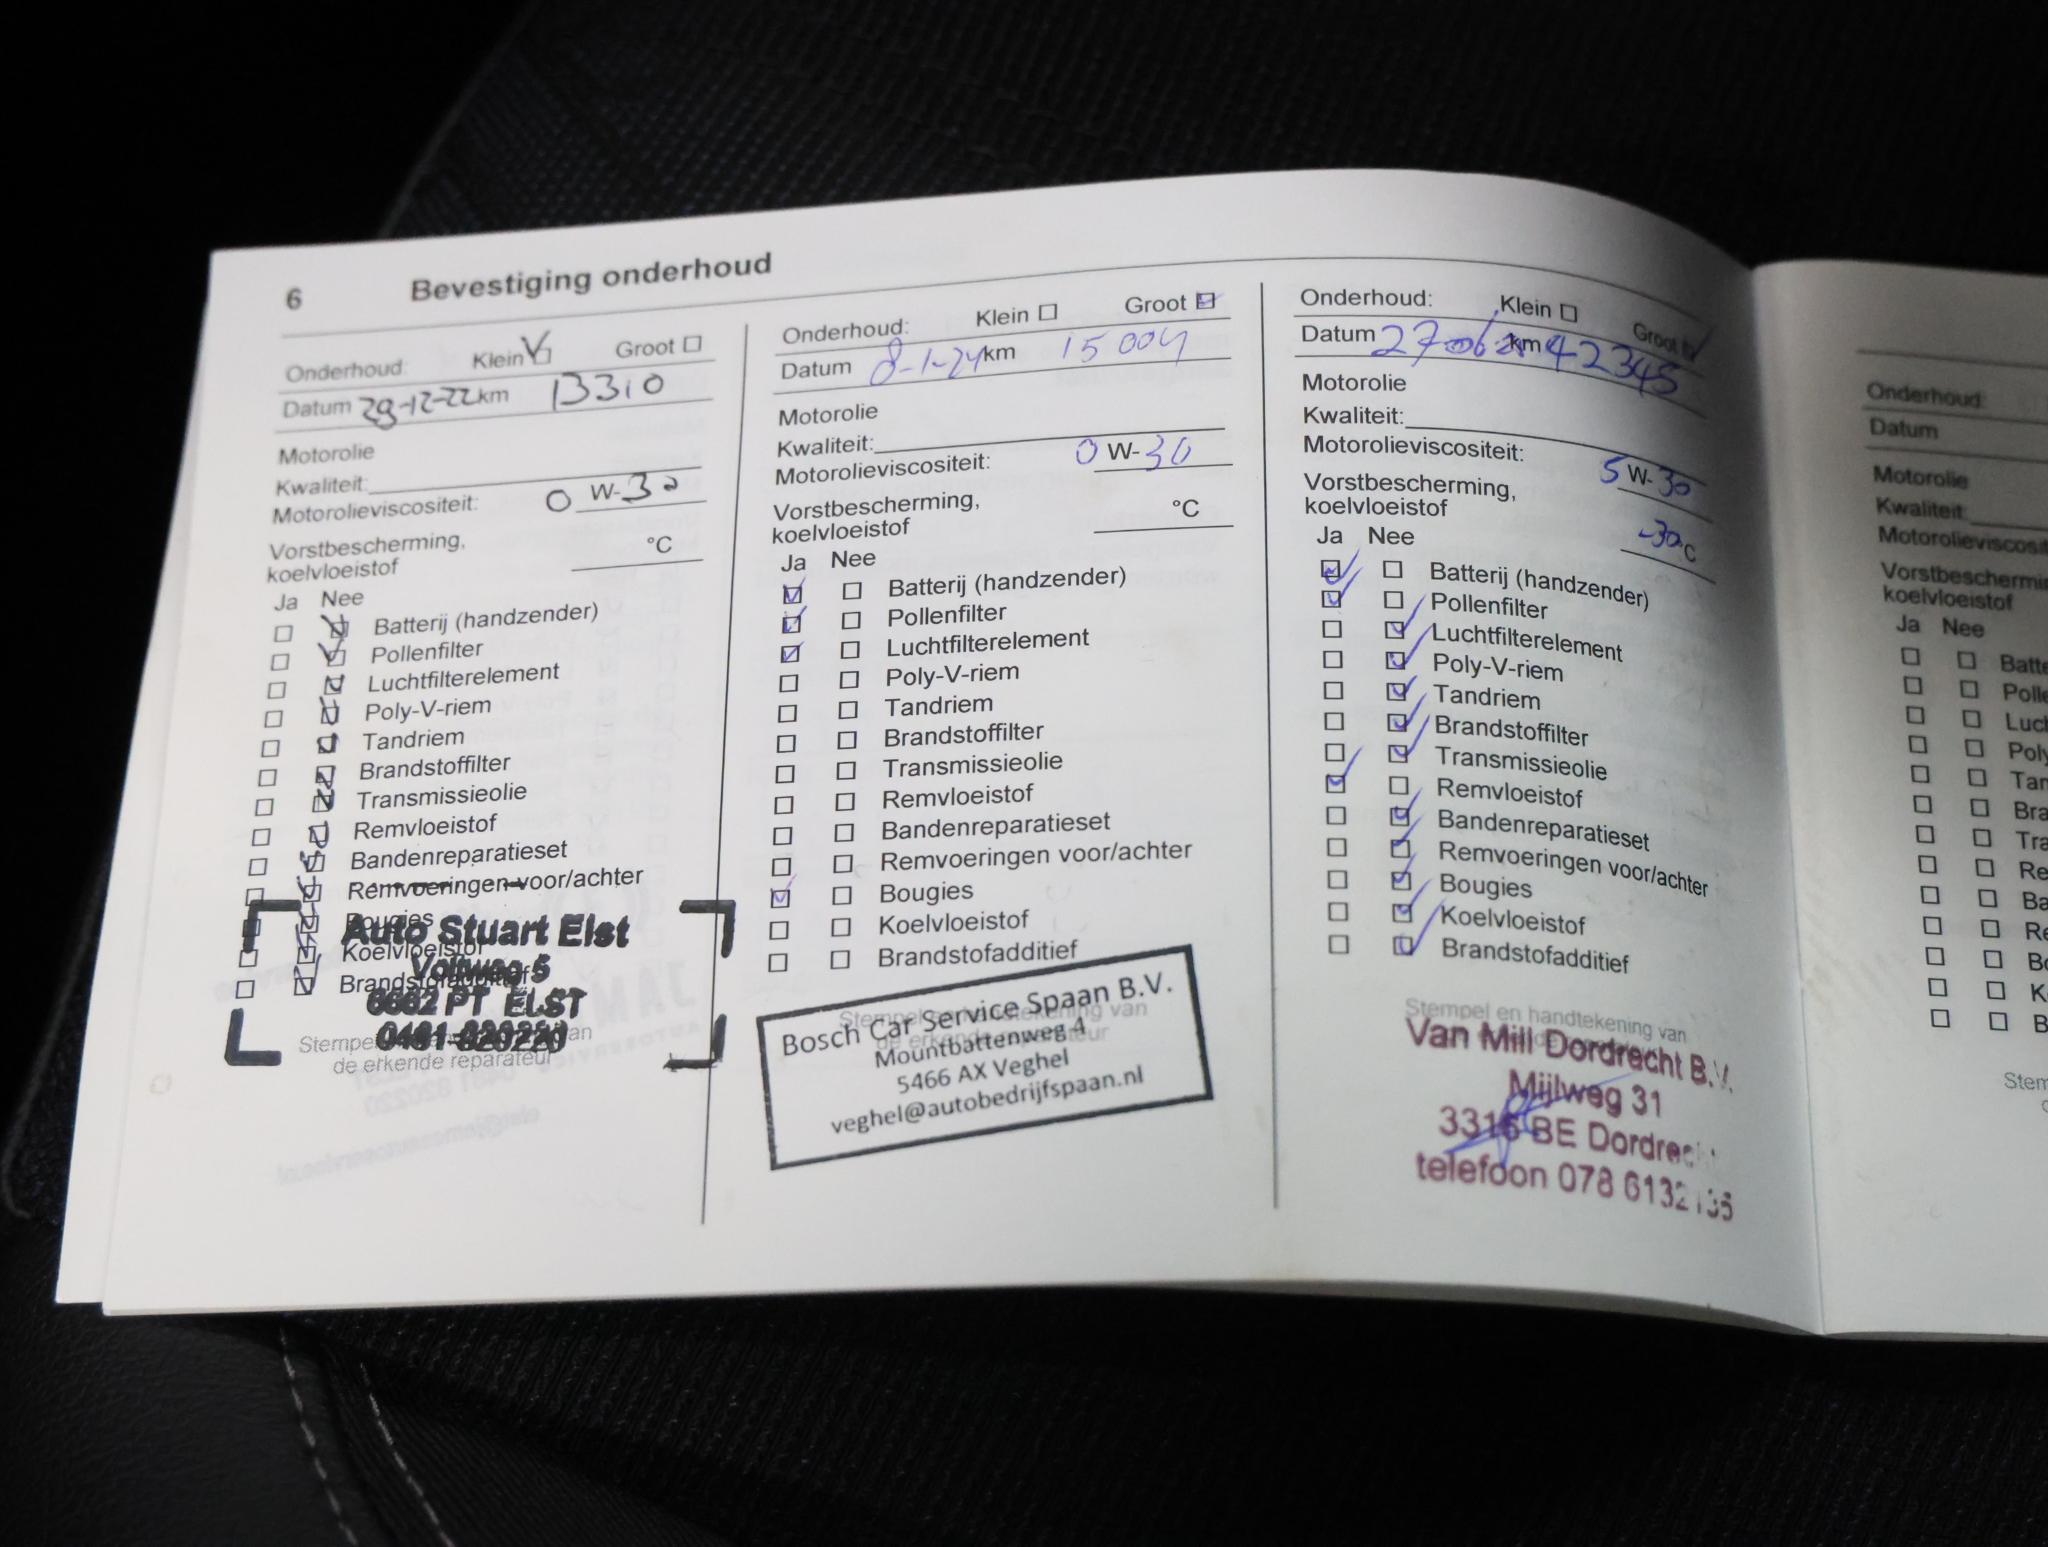 6 Bevestiging onderhoud
Onderhoud: Klein Groot
Datum 29-12-22 km 13310
Motorolie
Kwaliteit:
Motorolieviscositeit: 0 W-30
Vorstbescherming,
koelvloeistof °C
Ja Nee
Batterij (handzender)
Pollenfilter
Luchtfilterelement
Poly-V-riem
Tandriem
Brandstoffilter
Transmissieolie
Remvloeistof
Bandenreparatieset
Remvoeringen voor/achter
Bougies
Koelvloeistof
Brandstofadditief
Auto Stuart Elst
6662 PT ELST
0481-820220
Stempel van
de erkende reparateur
Onderhoud: Klein Groot
Datum 8-1-24 km 15004
Motorolie
Kwaliteit:
Motorolieviscositeit: 0 W-30
Vorstbescherming,
koelvloeistof °C
Ja Nee
Batterij (handzender)
Pollenfilter
Luchtfilterelement
Poly-V-riem
Tandriem
Brandstoffilter
Transmissieolie
Remvloeistof
Bandenreparatieset
Remvoeringen voor/achter
Bougies
Koelvloeistof
Brandstofadditief
Stempel en handtekening van
de erkende reparateur
Bosch Car Service Spaan B.V.
Mountbattenweg 4
5466 AX Veghel
veghel@autobedrijfspaan.nl
Onderhoud: Klein Groot
Datum 27-06 km 42345
Motorolie
Kwaliteit:
Motorolieviscositeit: 5 W-30
Vorstbescherming,
koelvloeistof -30 °C
Ja Nee
Batterij (handzender)
Pollenfilter
Luchtfilterelement
Poly-V-riem
Tandriem
Brandstoffilter
Transmissieolie
Remvloeistof
Bandenreparatieset
Remvoeringen voor/achter
Bougies
Koelvloeistof
Brandstofadditief
Stempel en handtekening van
Van Mill Dordrecht B.V.
Mijlweg 31
3316 BE Dordrec
telefoon 078 6132135
Onderhoud:
Datum
Motorolie
Kwaliteit:
Motorolieviscosit
Vorstbeschermin
koelvloeistof
Ja Nee
Batte
Polle
Luch
Poly
Tan
Bra
Tra
Re
Ba
Re
Bo
K
B
Stem